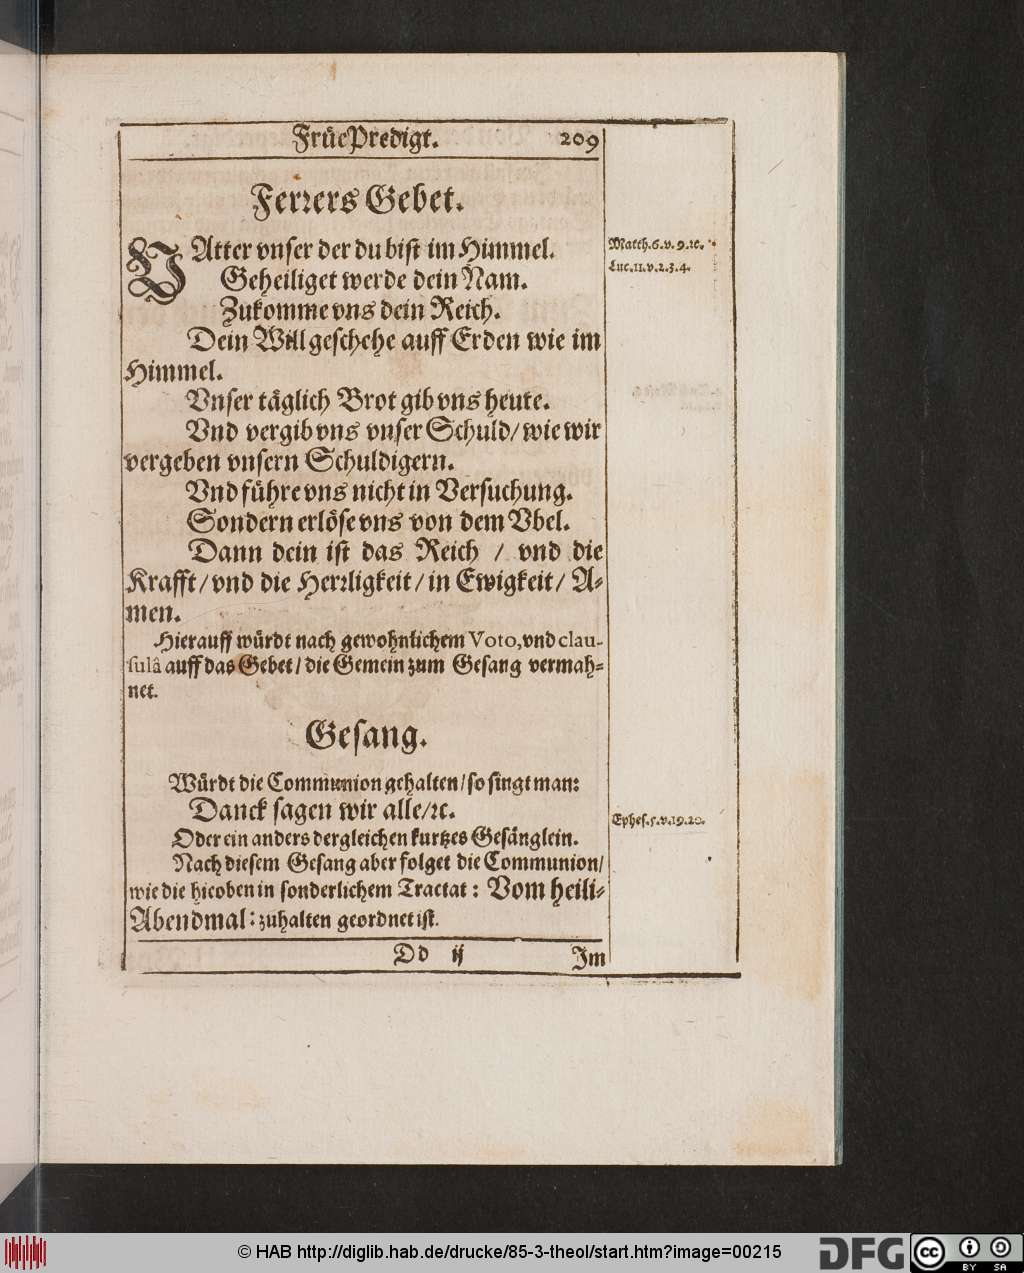 FrüePredigt. 209
Ferꝛers Gebet.
VAtter vnser der du bist im Himmel.
Geheiliget werde dein Nam.
Zukomme vns dein Reich.
Dein Will geschehe auff Erden wie im
Himmel.
Vnser täglich Brot gib vns heute.
Vnd vergib vns vnser Schuld/ wie wir
vergeben vnsern Schuldigern.
Vnd führe vns nicht in Versuchung.
Sondern erlöse vns von dem Vbel.
Dann dein ist das Reich / vnd die
Krafft/ vnd die Herꝛligkeit/ in Ewigkeit/ A-
men.
Hierauff würdt nach gewohnlichem Voto, vnd clau-
sulâ auff das Gebet/ die Gemein zum Gesang vermah-
net.
Gesang.
Würdt die Communion gehalten/ so singt man:
Danck sagen wir alle/ ꝛc.
Oder ein anders dergleichen kurtzes Gesänglein.
Nach diesem Gesang aber folget die Communion/
wie die hieoben in sonderlichem Tractat: Vom heili-
Abendmal: zuhalten geordnet ist.
Dd ij Im
Matth. 6. v. 9. ꝛc.
Luc. 11. v. 2. 3. 4.
Ephes. 5. v. 19. 20.
© HAB http://diglib.hab.de/drucke/85-3-theol/start.htm?image=00215
DFG
cc BY SA